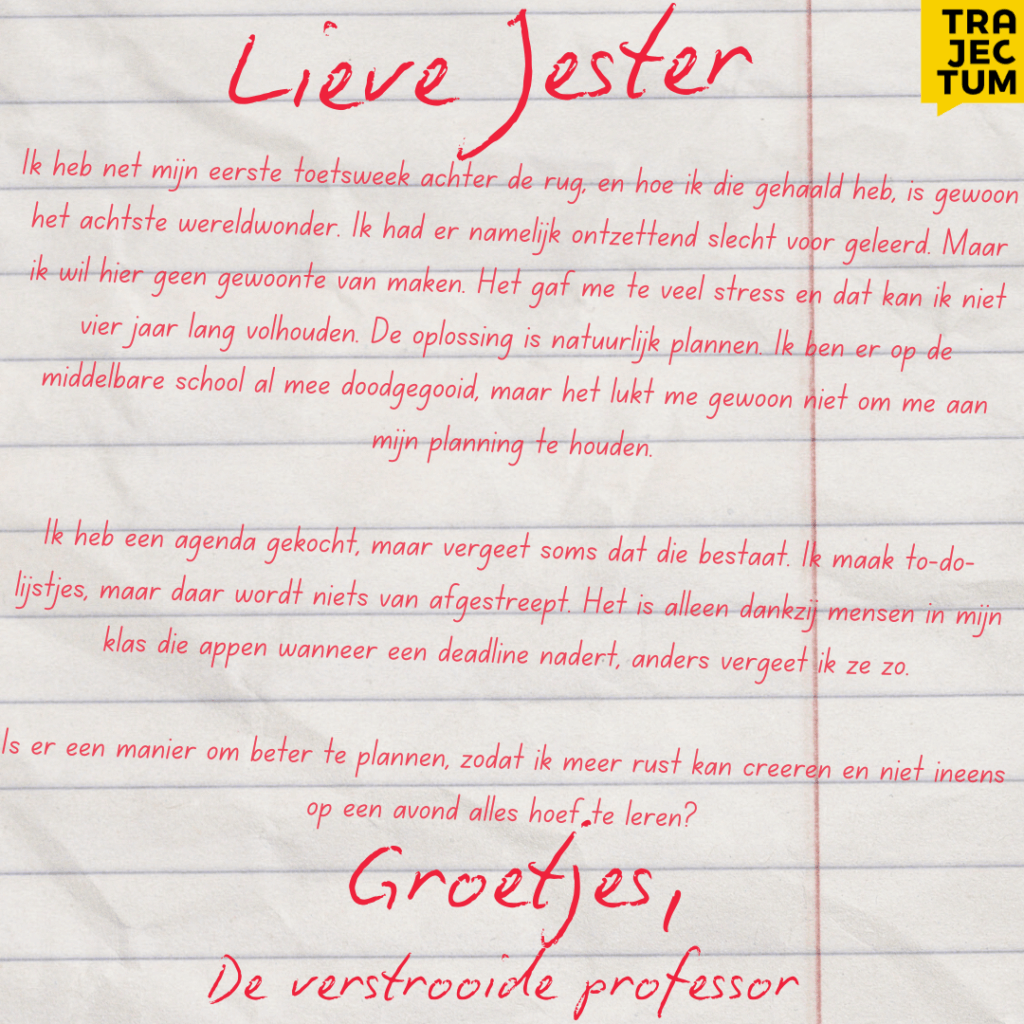 TRA
JEC
TUM
Lieve Jester
Ik heb net mijn eerste toetsweek achter de rug, en hoe ik die gehaald heb, is gewoon
het achtste wereldwonder. Ik had er namelijk ontzettend slecht voor geleerd. Maar
ik wil hier geen gewoonte van maken. Het gaf me te veel stress en dat kan ik niet
vier jaar lang volhouden. De oplossing is natuurlijk plannen. Ik ben er op de
middelbare school al mee doodgegooid, maar het lukt me gewoon niet om me aan
mijn planning te houden.
Ik heb een agenda gekocht, maar vergeet soms dat die bestaat. Ik maak to-do-
lijstjes, maar daar wordt niets van afgestreept. Het is alleen dankzij mensen in mijn
klas die appen wanneer een deadline nadert, anders vergeet ik ze zo.
Is er een manier om beter te plannen, zodat ik meer rust kan creeren en niet ineens
op een avond alles hoef te leren?
Groetjes,
De verstrooide professor